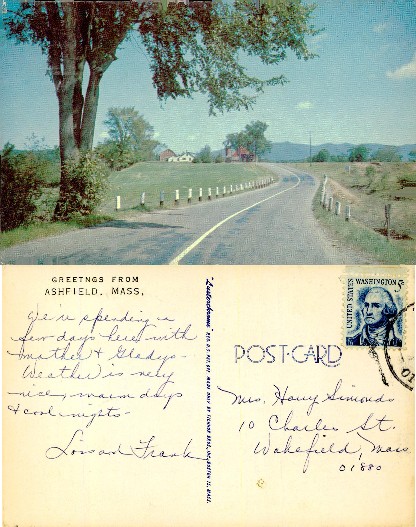 GREETNGS FROM
ASHFIELD, MASS,
We're spending a
few days here with
mother & Gladys -
Weather is very
nice, warm days
& cool nights -
Lois and Frank
"Lusterchrome"
POST-CARD
UNITED STATES
WASHINGTON 5c
Mrs. Harry Simonds
10 Charles St.
Wakefield, Mass
01880